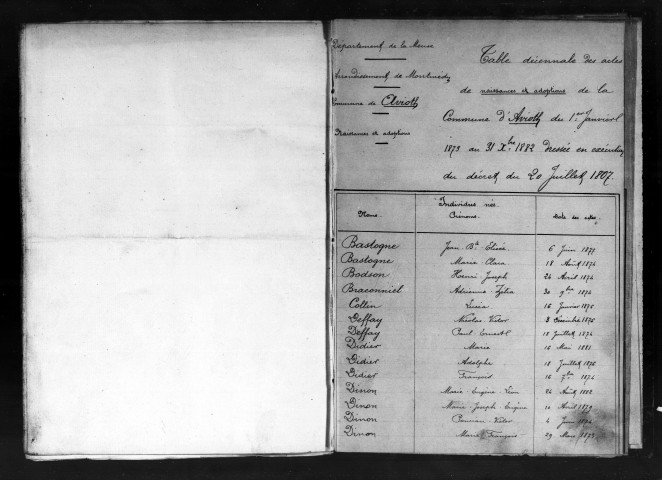 Département de la Meuse
Arrondissement de Montmédy
Commune de Avioth
Naissances et adoptions
Table décennale des actes
de naissances et adoptions de la
Commune d'Avioth du 1er Janvier
1873 au 31 Xbre 1882 dressée en exécution
du décret du 20 Juillet 1807.
Individus nés
Noms. Prénoms. Date des actes.
Bastogne Jean Bte Elisée 6 Juin 1877
Bastogne Marie Clara 18 Août 1874
Bodson Henri Joseph 24 Avril 1874
Braconnier Adrienne Zélia 30 9bre 1874
Collin Lucia 16 Janvier 1875
Deffay Nicolas Victor 3 Décembre 1875
Deffay Paul Ernest 10 Juillet 1874
Didier Marie 16 Mai 1881
Didier Adolphe 18 Juillet 1875
Didier François 16 7bre 1874
Dinon Marie Eugène Léon 24 Août 1882
Dinon Marie Joseph Eugène Avril 1879
Dinon Victor 4 Juin
Dinon Marie François 29 Mars 1873